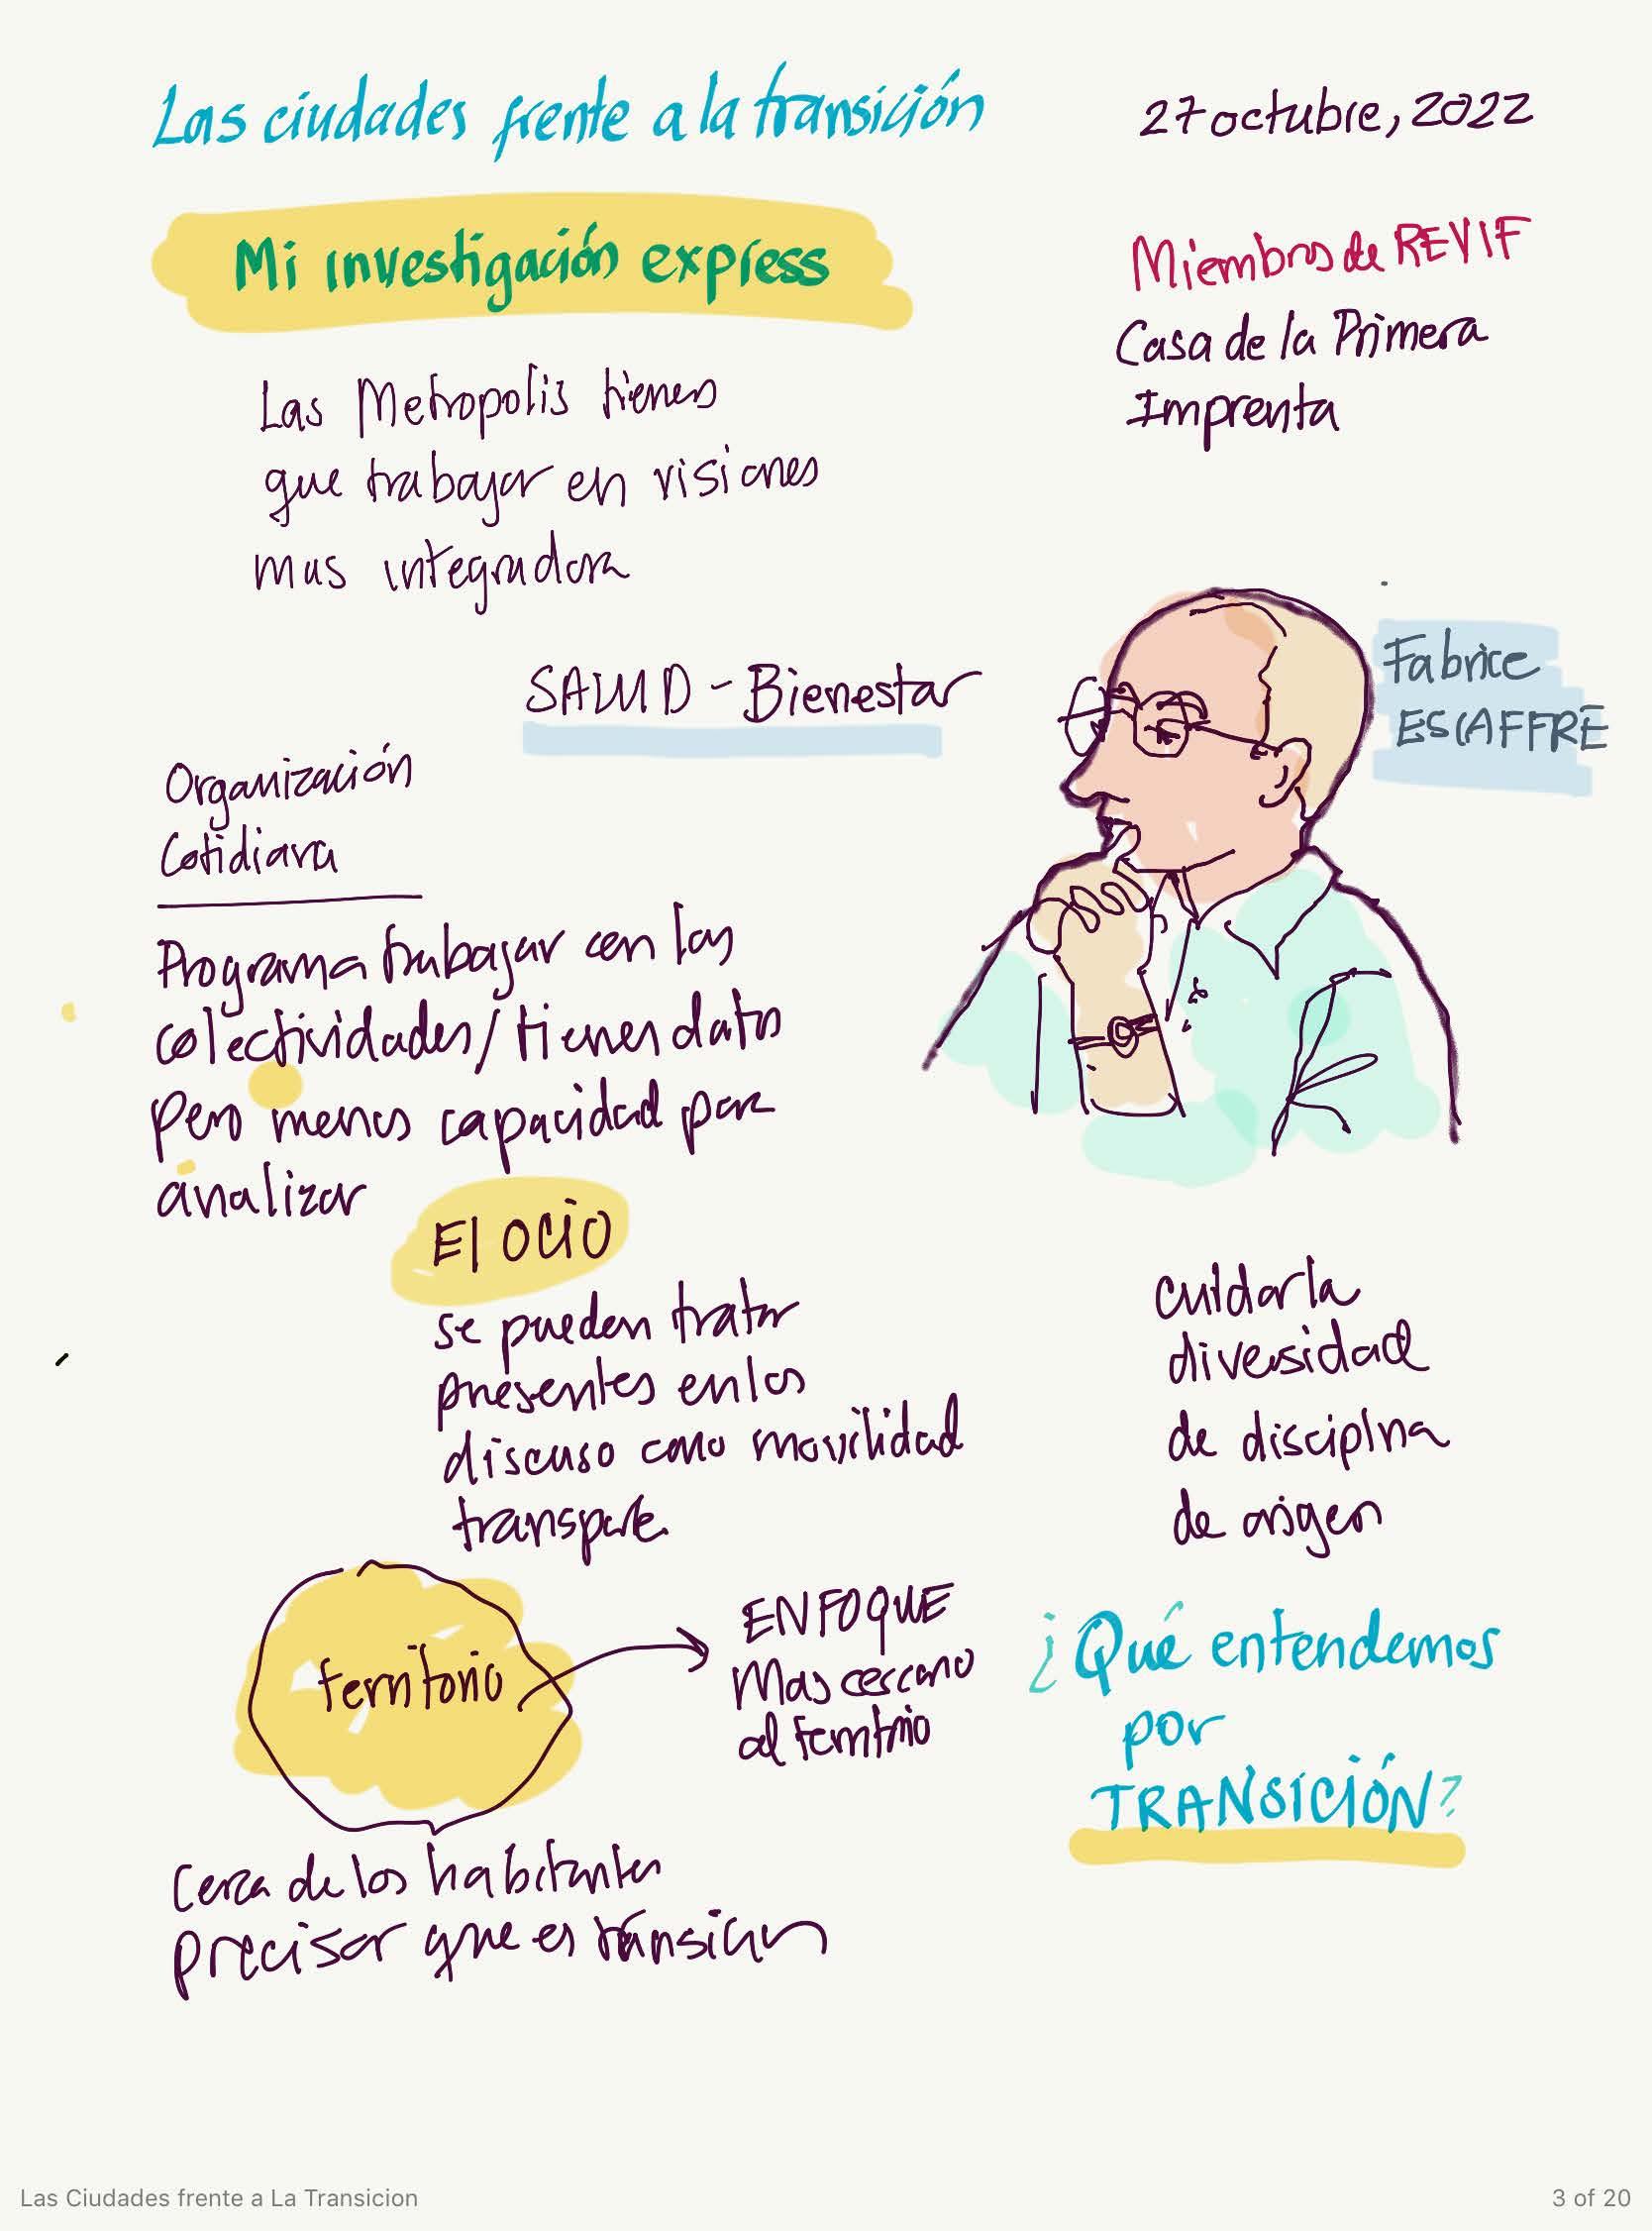 Las ciudades frente a la transición
27 octubre, 2022
Mi investigación express
Miembros de REVIF
Casa de la Primera
Imprenta
Las Metropolis tienen
que trabajar en visiones
mas integradora
Fabrice
ESCAFFRE
SALUD - Bienestar
Organización
Cotidiana
Programa trabajar con las
colectividades/tienen datos
pero menos capacidad para
analizar
El ocio
se pueden tratar
presentes en los
discuso como movilidad
transporte
cuidar la
diversidad
de disciplna
de origen
territorio
ENFOQUE
Mas cercano
al territorio
¿Qué entendemos
por
TRANSICIÓN?
Cerca de los habitantes
precisar que es transicion
Las Ciudades frente a La Transicion
3 of 20